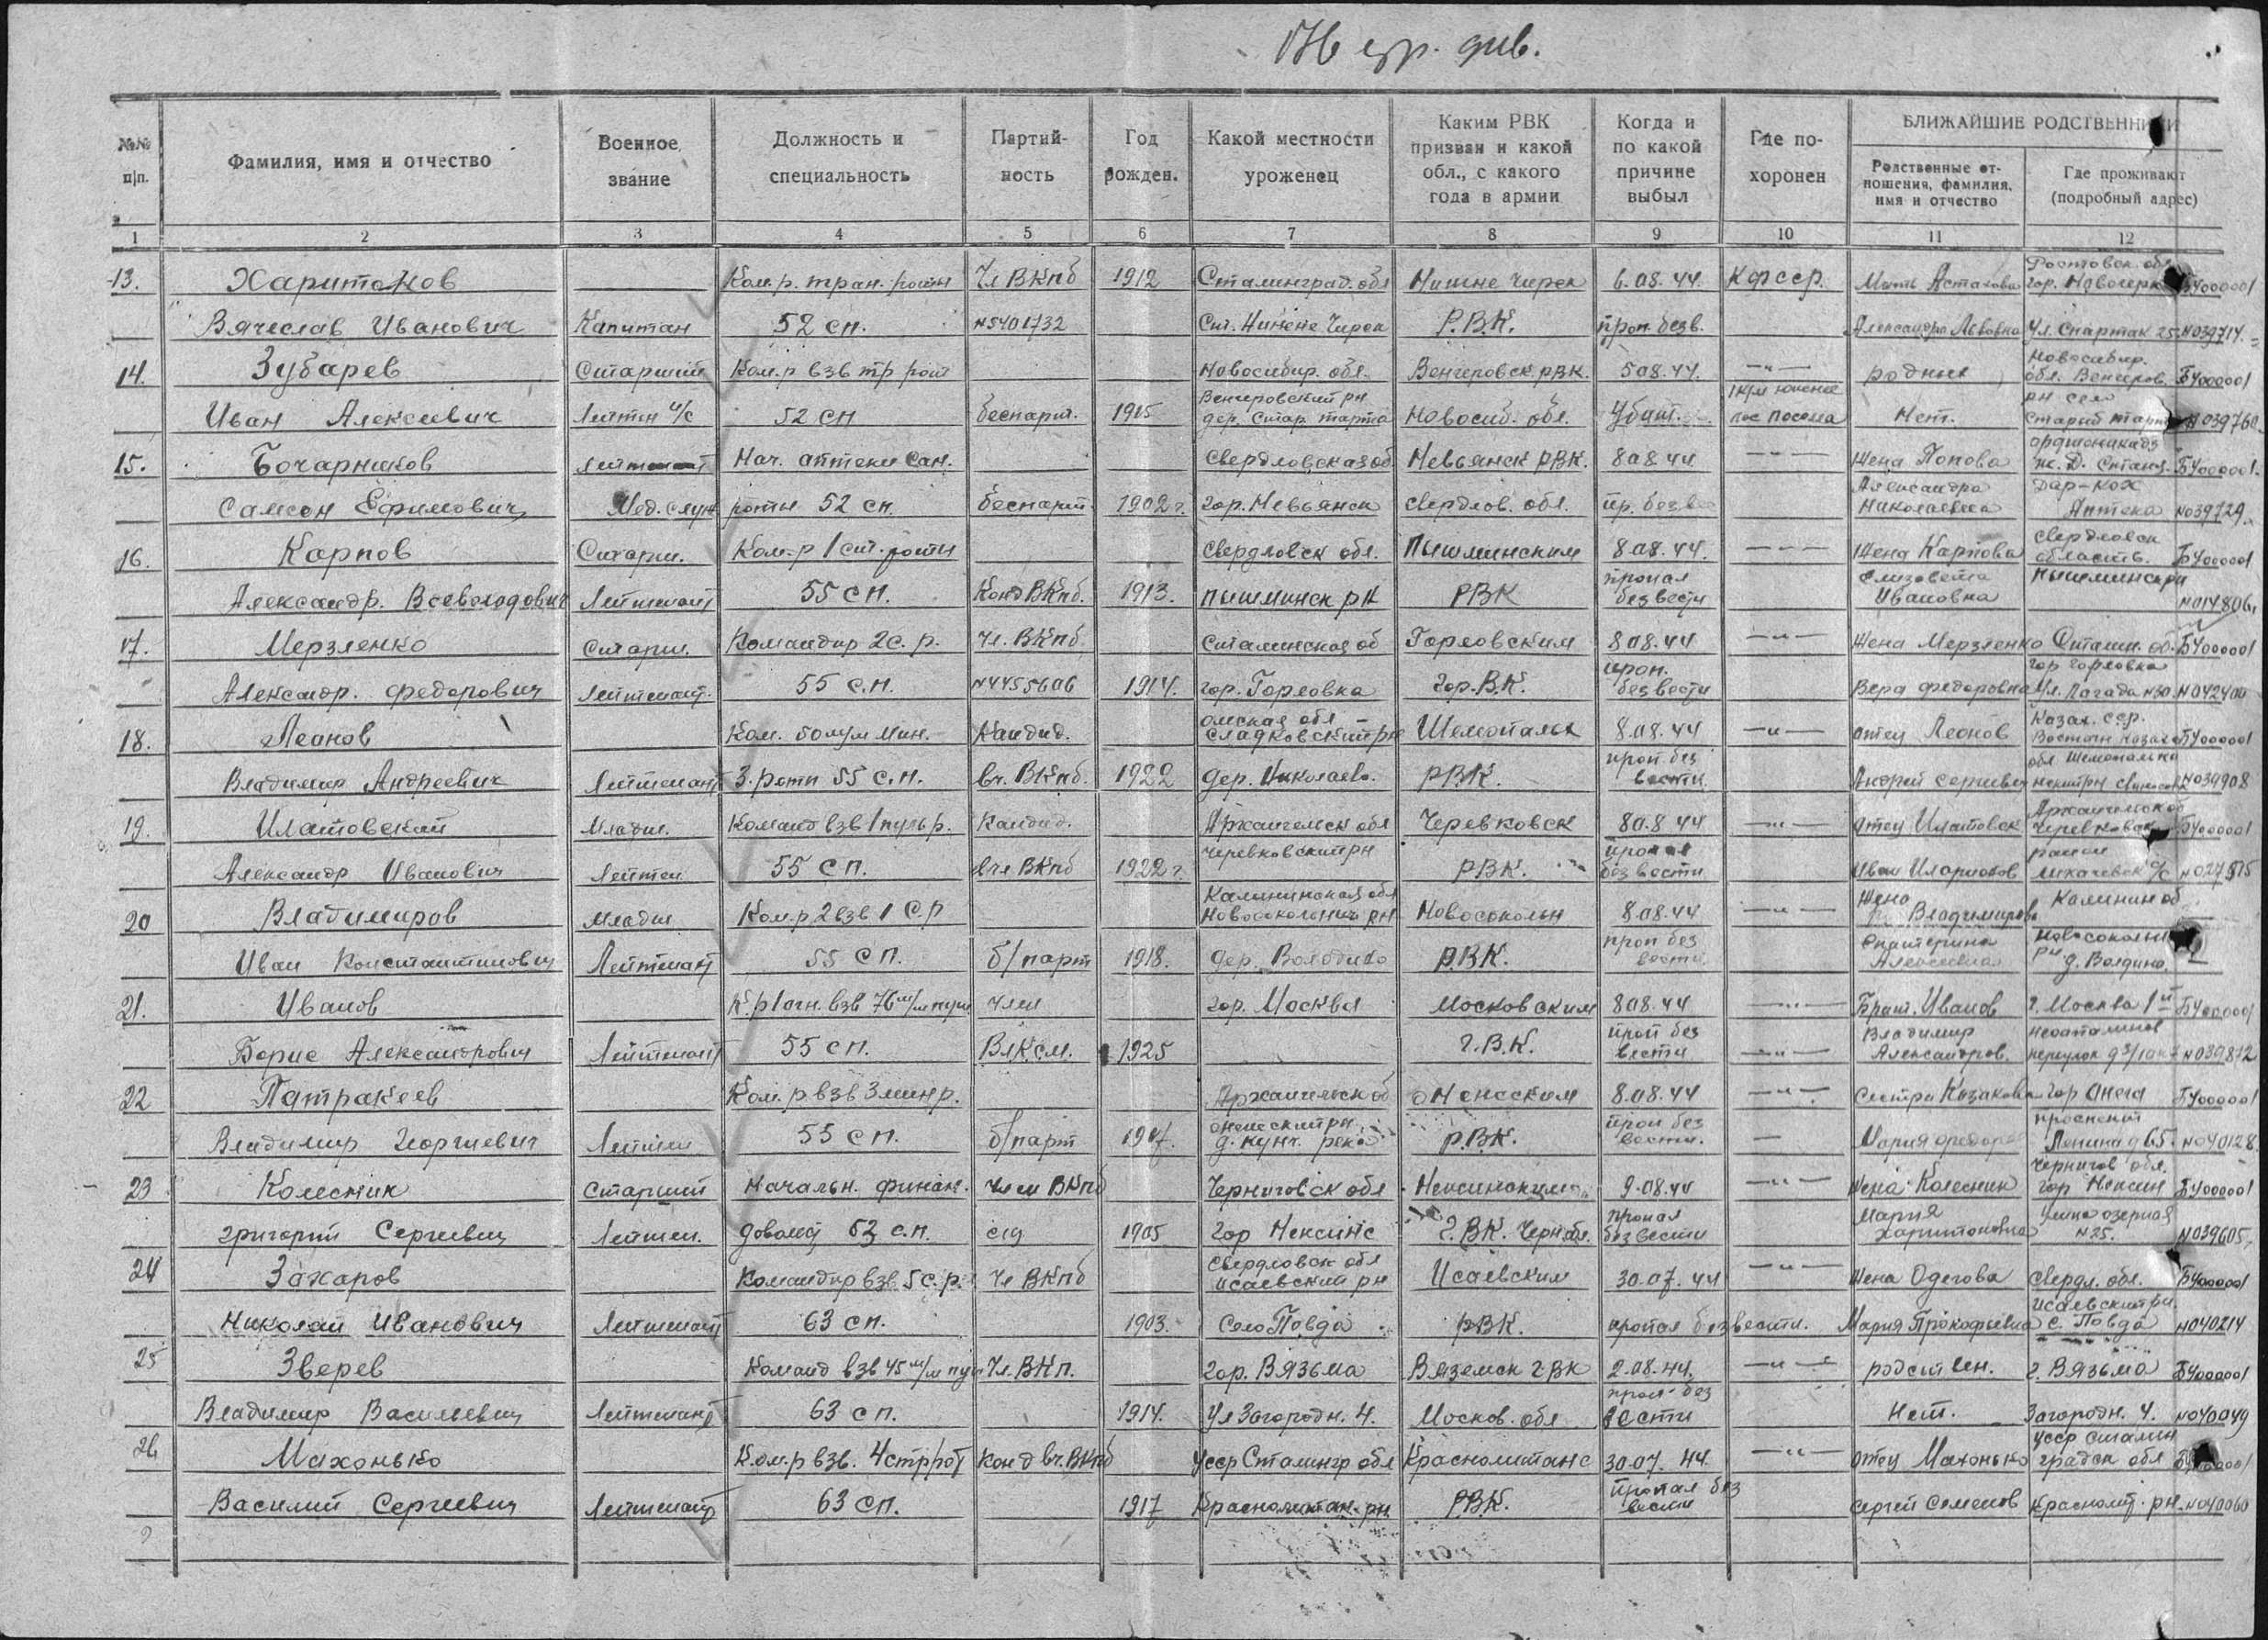 176 стр. див.
№№ п/п. | Фамилия, имя и отчество | Военное звание | Должность и специальность | Партий- ность | Год рожден. | Какой местности уроженец | Каким РВК призван и какой обл., с какого года в армии | Когда и по какой причине выбыл | Где по- хоронен | БЛИЖАЙШИЕ РОДСТВЕННИКИ
Родственные от- ношения, фамилия, имя и отчество | Где проживают (подробный адрес)
1 | 2 | 3 | 4 | 5 | 6 | 7 | 8 | 9 | 10 | 11 | 12
13. Харитонов | Ком.р. тран. роты | Чл ВКпб | 1912 | Сталинград. обл | Нижне Чирск | 6.08.44. | Кфсср. | Мать Астахова | Ростовск. обл гор. Новочерк | Б4000001
Вячеслав Иванович | Капитан | 52 сп. | N5401732 | Ст. Нижне Чирск | Р.В.К. | проп. безв. | Александра Львовна | Ул. Спартак 25. | N039714.
14. Зубарев | Старший | Ком.р взв тр рот | Новосибир. обл. | Венгеровск рвк. | 5 08.44. | -"- | родных | Новосибир. обл. Венгеров. | Б4000001
Иван Алексеевич | Лейтен и/с | 52 сп | беспарт. | 1915 | Венгеровский рн дер. Стар. тарта | Новосиб. обл. | Убит. | 1км южнее | Нет. | рн село Старый тарт | N039760
15. Бочарников | лейтенант | Нач. аптеки Сан. | Свердловская об | Невьянск РВК. | 8 08 44 | -"- | Жена Попова | орджоникидз ж. д. Станц. | Б4000001.
Самсон Ефимович | Мед. служ | роты 52 сп. | беспарт. | 1902 г. | гор. Невьянск | Свердлов. обл. | пр. без ве | Александра Николаевна | Дар-Кох Аптека | N039729.
16. Карпов | Старш. | Ком.р 1 ст. роты | Свердловск обл. | Пышминским | 8 08.44. | --- | Жена Карпова | Свердловск область. | Б4000001
Александр. Всеволодович | Лейтенант | 55 сп. | Канд ВКпб. | 1913. | пышминск рн | РВК | пропал без вести | Елизовета Ивановна | Пышминскрн | N014806,
17. Мерзленко | Старш. | Командир 2 с. р. | Чл. ВКпб. | Сталинская об | Горловским | 8 08.44 | -"- | Жена Мерзленко | Сталин. об. | Б4000001
Александр. Федорович | лейтенант. | 55 с.п. | N4455606 | 1914. | гор. Горловка | гор. В.К. | проп. без вести | Вера Федоровна | гор Горловка Ул. N30. | N042400
18. Леонов | Ком. мин. | Кандид. | Омская обл Сладковский рн | | 8.08.44 | -"- | отец Леонов | Казах. сср. Восточн Казахс | Б4000001
Владимир Андреевич | Лейтенант | 3. роты 55 с.п. | вч. ВКпб. | 1922 | дер. Николаево. | РВК. | проп без вести | Андрей Сергеевич | | N039908
19. Илатовский | Младш. | Команд взв 1 пуль р. | Кандид. | Архангельск обл | Черевковск | 8 0.8 44 | -"- | отец Илатовск | Архангельск об Черевковск | Б4000001
Александр Иванович | Лейтен. | 55 сп. | вчл ВКпб | 1922 г. | Черевковский рн | РВК. | пропал без вести | Иван Иларионов | район с/с | N027515
20 Владимиров | Младш | Ком.р 2 взв 1 с.р | Калининская обл Новосокольнич рн | Новосокольн | 8.08.44 | -"- | Жена Владимирова | Калинин об
Иван Константинович | Лейтенант | 55 сп. | б/парт | 1918. | дер. | Р.В.К. | проп без вести. | Екатерина Алексеевна | Новосокольн рн
21. Иванов | К.р 1 огн. взв 76 м/м пуш | член | гор. Москва | Московским | 8 08.44 | -"- | Брат. Иванов | г. Москва 1й | Б4000001
Борис Александрович | Лейтенант | 55 сп. | ВЛКсм. | 1925 | Г.В.К. | проп без вести | -"- | Владимир Александров. | переулок | N039872
22 Патракеев | Ком.р взв 3 мин р. | Архангельск об | Онежским | 8.08.44 | -"- | Сестра Казакова | гор Онега | Б4000001
Владимир Георгиевич | Лейтен | 55 сп. | б/парт | Онежский рн д. река | Р.В.К. | проп без вести. | — | Мария Федор | проспект Ленина д 65. | N040128
23 Колесник | Старший | Начальн. финан. | Член ВКпб | Черниговск обл | Нежинским | 9.08.44 | -"- | Жена Колесник | Чернигов обл. гор Нежин | Б4000001
Григорий Сергеевич | Лейтен. | довольс 63 с.п. | 1905 | гор Нежинс | Г.ВК. Черн обл. | пропал без вести | Мария Харитоновна | Улица озерная N25. | N039605,
24 Захаров | Командир взв. 5 с.р. | Чл ВКпб | Свердловск обл Исаевский рн | Исаевским | 30.07.44 | -"- | Жена Одегова | Свердл. обл. | Б4000001
Николай Иванович | Лейтенант | 63 сп. | 1903. | Село Повда | РВК. | пропал без вести. | Мария Прокофьевна | Исаевский рн. с. Повда | N040214
25 Зверев | Команд взв 45 м/м пуш | Чл. ВКп. | гор. Вязьма | Вяземск г ВК | 2.08.44. | -"- | родствен. | г. Вязьма | Б4000001
Владимир Васильевич | Лейтенант | 63 сп. | 1914. | Ул Загородн. 4. | Москов. обл | проп без вести | Нет. | Загородн. 4. | N040049
26 Махонько | Ком.р взв. 4 стр рот | Канд вч. ВКпб | Усср Сталингр обл | Краснолиманс | 30.07.44. | -"- | отец Махонько | Усср Сталин градск обл
Василий Сергеевич | Лейтенант | 63 сп. | 1917 | Краснолиман. рн | Р.В.К. | пропал без вести | Сергей Семенов | Краснолим. рн. | N040060